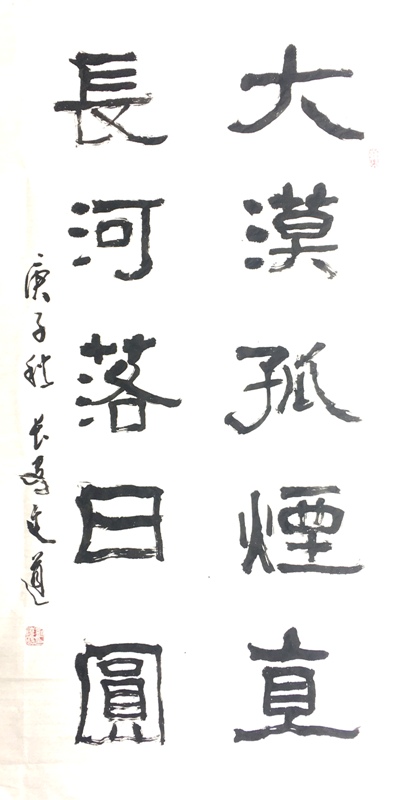 大漠孤煙直
長河落日圓
庚子秋 长